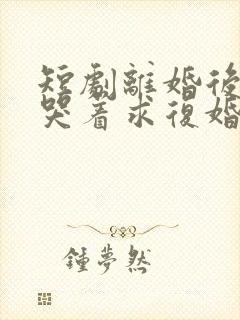 短劇離婚後
哭着求復婚
鍾夢然